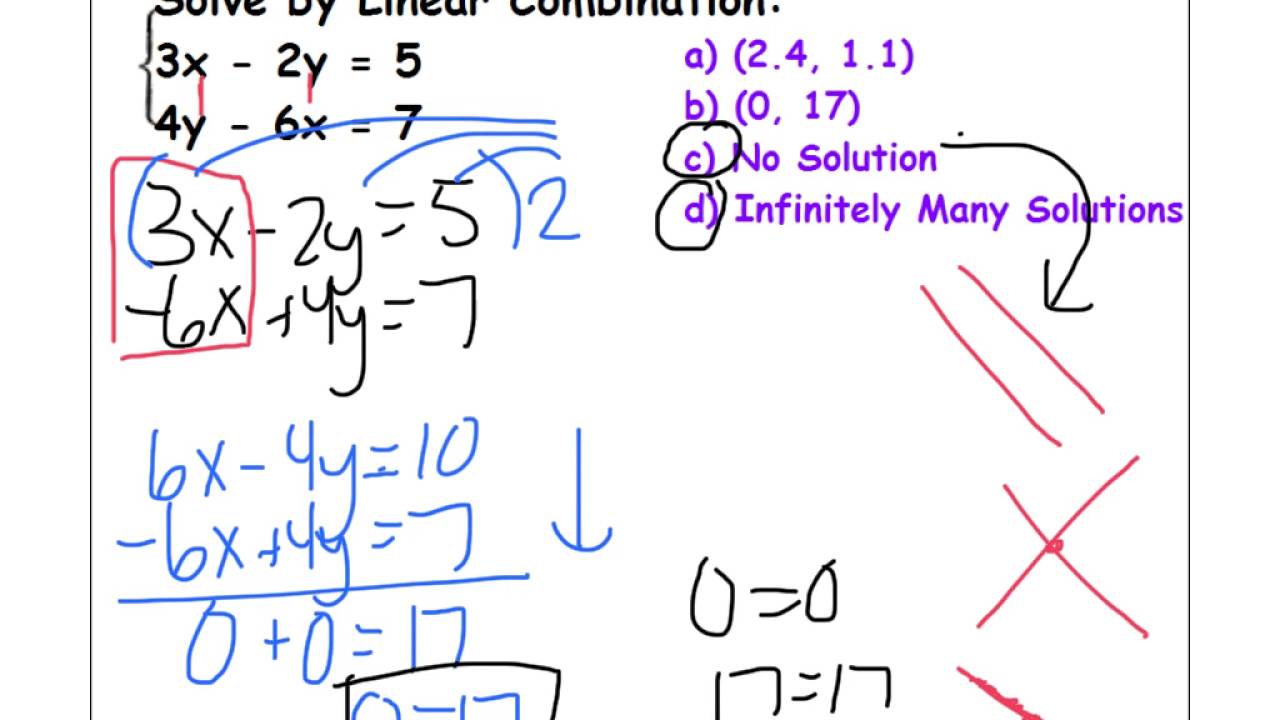 Solve by Linear Combination:
3x - 2y = 5
4y - 6x = 7
a) (2.4, 1.1)
b) (0, 17)
c) No Solution
d) Infinitely Many Solutions
3x - 2y = 5 ) 2
-6x + 4y = 7
6x - 4y = 10
-6x + 4y = 7
0 + 0 = 17
0 = 17
0 = 0
17 = 17